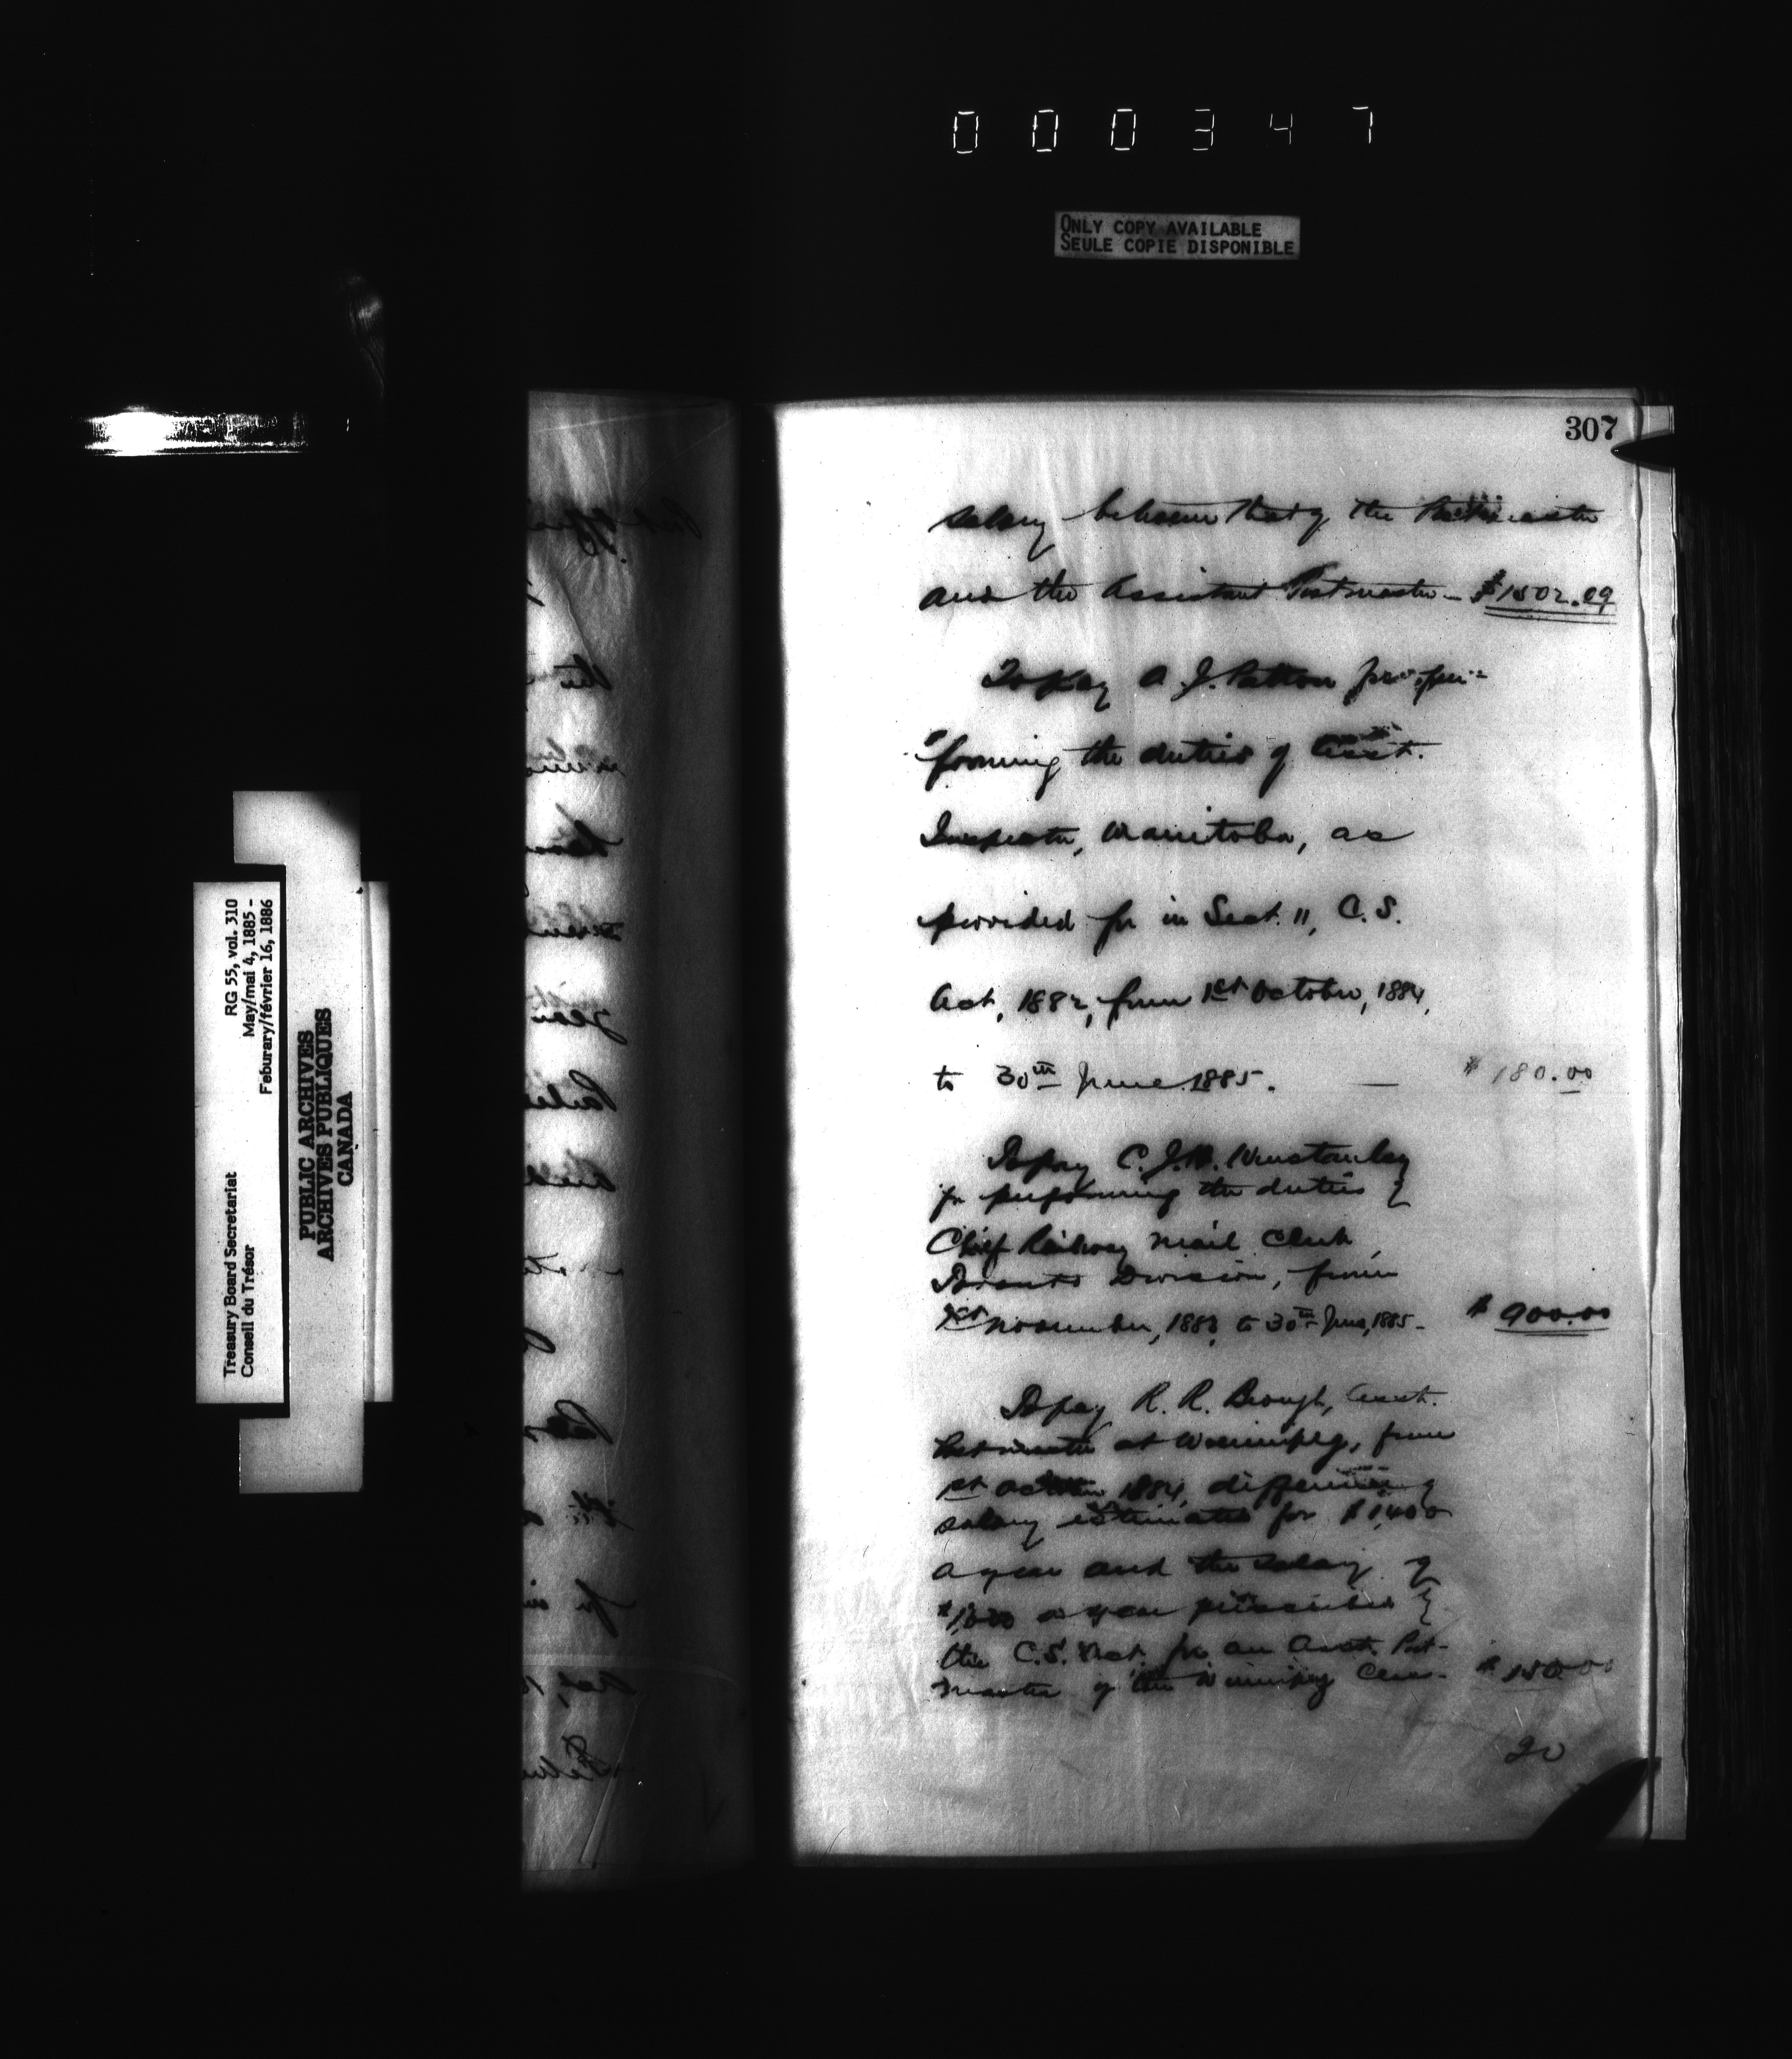 000347
ONLY COPY AVAILABLE
SEULE COPIE DISPONIBLE
307
salary between that of the Postmaster
and the Assistant Postmaster - $1502.09
To pay A. J. Patton for per-
forming the duties of Asst.
Inspector, Manitoba, as
provided for in Sect. 11, C.S.
Act, 1882, from 1st October, 1884,
to 30th June 1885. — $180.00
To pay C. J. H. Winstanley
for performing the duties of
Chief Railway Mail Clerk,
Toronto Division, from
1st November, 1883, to 30th June, 1885 - $900.00
To pay R. R. Brough, Asst.
Postmaster at Winnipeg, from
1st October 1884, difference
salary estimates for $1,400
a year and the salary of
a year
the C.S. Act for an Asst. Post-
master of the Winnipeg Class - $150.00
20
Treasury Board Secretariat RG 55, vol. 310
Conseil du Trésor May/mai 4, 1885 -
Feburary/février 16, 1886
PUBLIC ARCHIVES
ARCHIVES PUBLIQUES
CANADA